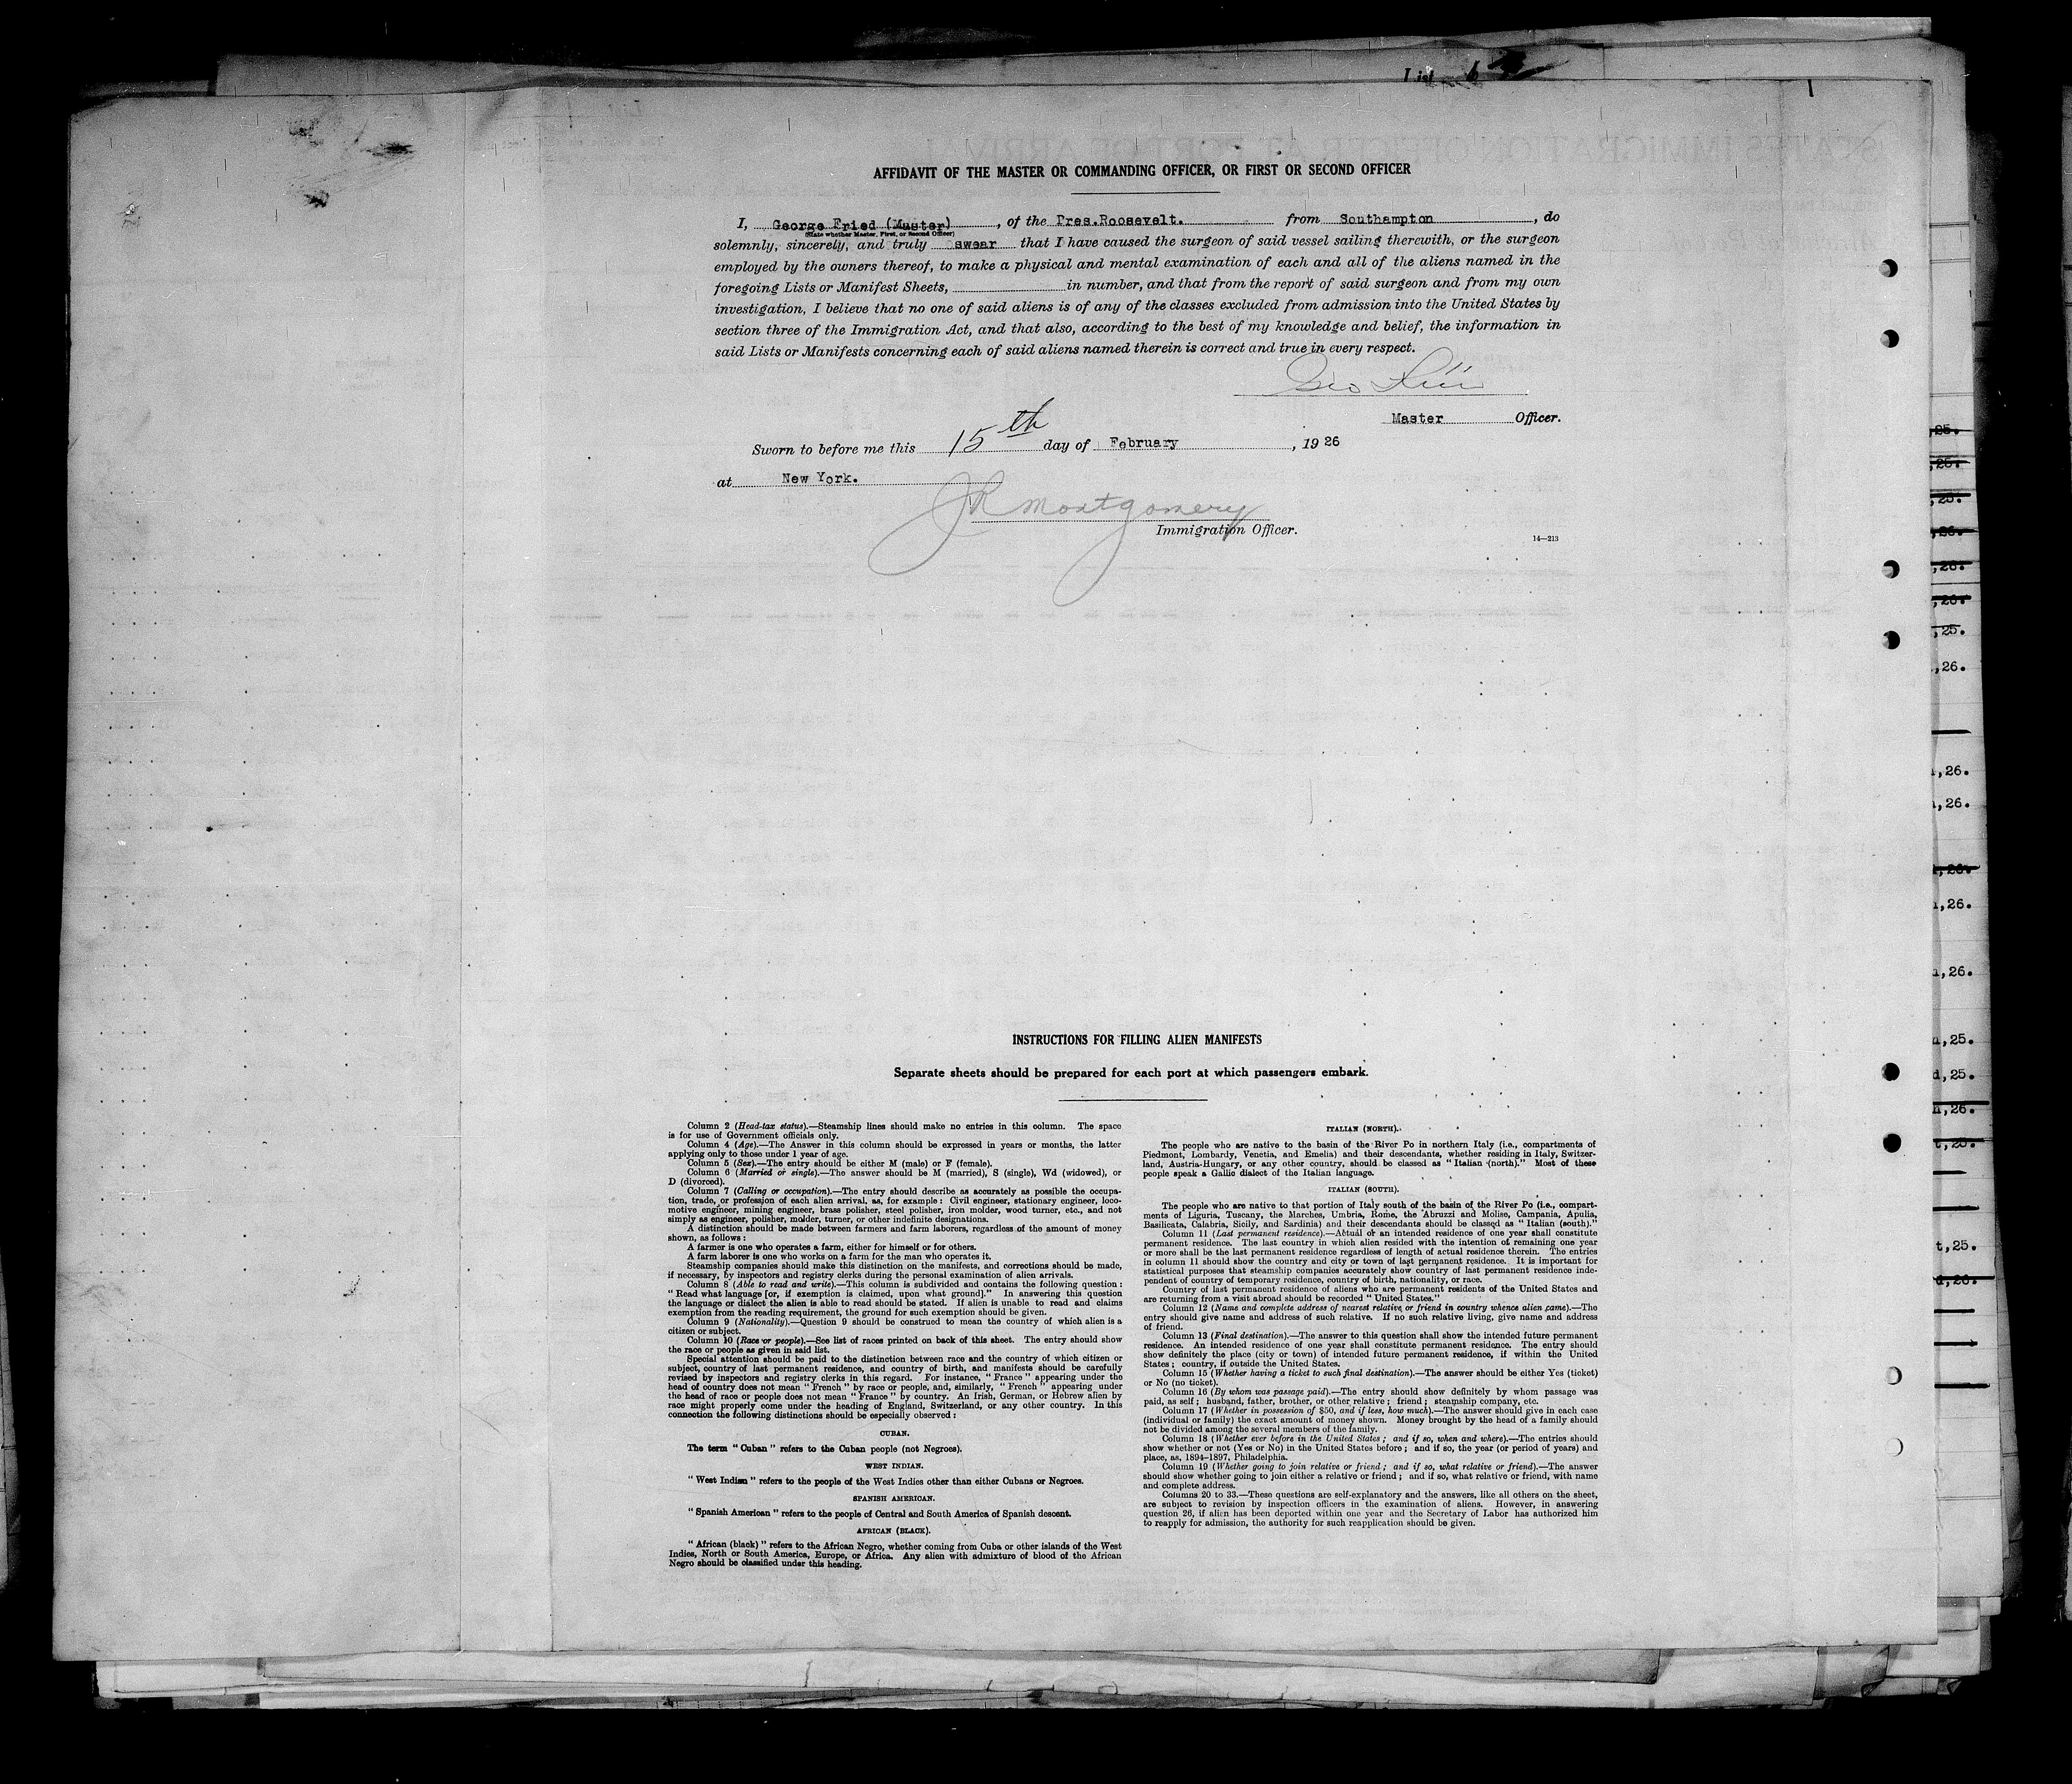 List
AFFIDAVIT OF THE MASTER OR COMMANDING OFFICER, OR FIRST OR SECOND OFFICER
I, George Fried (Master), of the Pres.Roosevelt. from Southampton, do
(State whether Master, First, or Second Officer)
solemnly, sincerely, and truly swear that I have caused the surgeon of said vessel sailing therewith, or the surgeon
employed by the owners thereof, to make a physical and mental examination of each and all of the aliens named in the
foregoing Lists or Manifest Sheets, in number, and that from the report of said surgeon and from my own
investigation, I believe that no one of said aliens is of any of the classes excluded from admission into the United States by
section three of the Immigration Act, and that also, according to the best of my knowledge and belief, the information in
said Lists or Manifests concerning each of said aliens named therein is correct and true in every respect.
Geo Fried
Master Officer.
Sworn to before me this 15th day of February, 1926
at New York.
JR Montgomery
Immigration Officer.
14—213
INSTRUCTIONS FOR FILLING ALIEN MANIFESTS
Separate sheets should be prepared for each port at which passengers embark.
Column 2 (Head-tax status).—Steamship lines should make no entries in this column. The space
is for use of Government officials only.
Column 4 (Age).—The Answer in this column should be expressed in years or months, the latter
applying only to those under 1 year of age.
Column 5 (Sex).—The entry should be either M (male) or F (female).
Column 6 (Married or single).—The answer should be M (married), S (single), Wd (widowed), or
D (divorced).
Column 7 (Calling or occupation).—The entry should describe as accurately as possible the occupa-
tion, trade, or profession of each alien arrival, as, for example: Civil engineer, stationary engineer, loco-
motive engineer, mining engineer, brass polisher, steel polisher, iron molder, wood turner, etc., and not
simply as engineer, polisher, molder, turner, or other indefinite designations.
A distinction should be made between farmers and farm laborers, regardless of the amount of money
shown, as follows:
A farmer is one who operates a farm, either for himself or for others.
A farm laborer is one who works on a farm for the man who operates it.
Steamship companies should make this distinction on the manifests, and corrections should be made,
if necessary, by inspectors and registry clerks during the personal examination of alien arrivals.
Column 8 (Able to read and write).—This column is subdivided and contains the following question:
"Read what language [or, if exemption is claimed, upon what ground]." In answering this question
the language or dialect the alien is able to read should be stated. If alien is unable to read and claims
exemption from the reading requirement, the ground for such exemption should be given.
Column 9 (Nationality).—Question 9 should be construed to mean the country of which alien is a
citizen or subject.
Column 10 (Race or people).—See list of races printed on back of this sheet. The entry should show
the race or people as given in said list.
Special attention should be paid to the distinction between race and the country of which citizen or
subject, country of last permanent residence, and country of birth, and manifests should be carefully
revised by inspectors and registry clerks in this regard. For instance, "France" appearing under the
head of country does not mean "French" by race or people, and, similarly, "French" appearing under
the head of race or people does not mean "France" by country. An Irish, German, or Hebrew alien by
race might properly come under the heading of England, Switzerland, or any other country. In this
connection the following distinctions should be especially observed:
CUBAN.
The term "Cuban" refers to the Cuban people (not Negroes).
WEST INDIAN.
"West Indian" refers to the people of the West Indies other than either Cubans or Negroes.
SPANISH AMERICAN.
"Spanish American" refers to the people of Central and South America of Spanish descent.
AFRICAN (BLACK).
"African (black)" refers to the African Negro, whether coming from Cuba or other islands of the West
Indies, North or South America, Europe, or Africa. Any alien with admixture of blood of the African
Negro should be classified under this heading.
ITALIAN (NORTH).
The people who are native to the basin of the River Po in northern Italy (i.e., compartments of
Piedmont, Lombardy, Venetia, and Emelia) and their descendants, whether residing in Italy, Switzer-
land, Austria-Hungary, or any other country, should be classed as "Italian (north)." Most of these
people speak a Gallic dialect of the Italian language.
ITALIAN (SOUTH).
The people who are native to that portion of Italy south of the basin of the River Po (i.e., compart-
ments of Liguria, Tuscany, the Marches, Umbria, Rome, the Abruzzi and Molise, Campania, Apulia,
Basilicata, Calabria, Sicily, and Sardinia) and their descendants should be classed as "Italian (south)."
Column 11 (Last permanent residence).—Actual or an intended residence of one year shall constitute
permanent residence. The last country in which alien resided with the intention of remaining one year
or more shall be the last permanent residence regardless of length of actual residence therein. The entries
in column 11 should show the country and city or town of last permanent residence. It is important for
statistical purposes that steamship companies accurately show country of last permanent residence inde-
pendent of country of temporary residence, country of birth, nationality, or race.
Country of last permanent residence of aliens who are permanent residents of the United States and
are returning from a visit abroad should be recorded "United States."
Column 12 (Name and complete address of nearest relative or friend in country whence alien came).—The
entry should give name and address of such relative. If no such relative living, give name and address
of friend.
Column 13 (Final destination).—The answer to this question shall show the intended future permanent
residence. An intended residence of one year shall constitute permanent residence. The entry should
show definitely the place (city or town) of intended future permanent residence, if within the United
States; country, if outside the United States.
Column 15 (Whether having a ticket to such final destination).—The answer should be either Yes (ticket)
or No (no ticket).
Column 16 (By whom was passage paid).—The entry should show definitely by whom passage was
paid, as self; husband, father, brother, or other relative; friend; steamship company, etc.
Column 17 (Whether in possession of $50, and if less, how much).—The answer should give in each case
(individual or family) the exact amount of money shown. Money brought by the head of a family should
not be divided among the several members of the family.
Column 18 (Whether ever before in the United States; and if so, when and where).—The entries should
show whether or not (Yes or No) in the United States before; and if so, the year (or period of years) and
place, as, 1894-1897, Philadelphia.
Column 19 (Whether going to join relative or friend; and if so, what relative or friend).—The answer
should show whether going to join either a relative or friend; and if so, what relative or friend, with name
and complete address.
Columns 20 to 33.—These questions are self-explanatory and the answers, like all others on the sheet,
are subject to revision by inspection officers in the examination of aliens. However, in answering
question 26, if alien has been deported within one year and the Secretary of Labor has authorized him
to reapply for admission, the authority for such reapplication should be given.